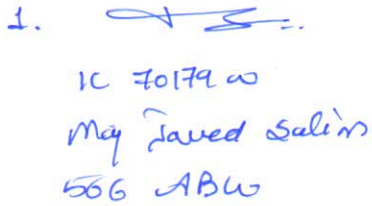 1.
IC 70179 W
Maj Javed Salim
506 ABW